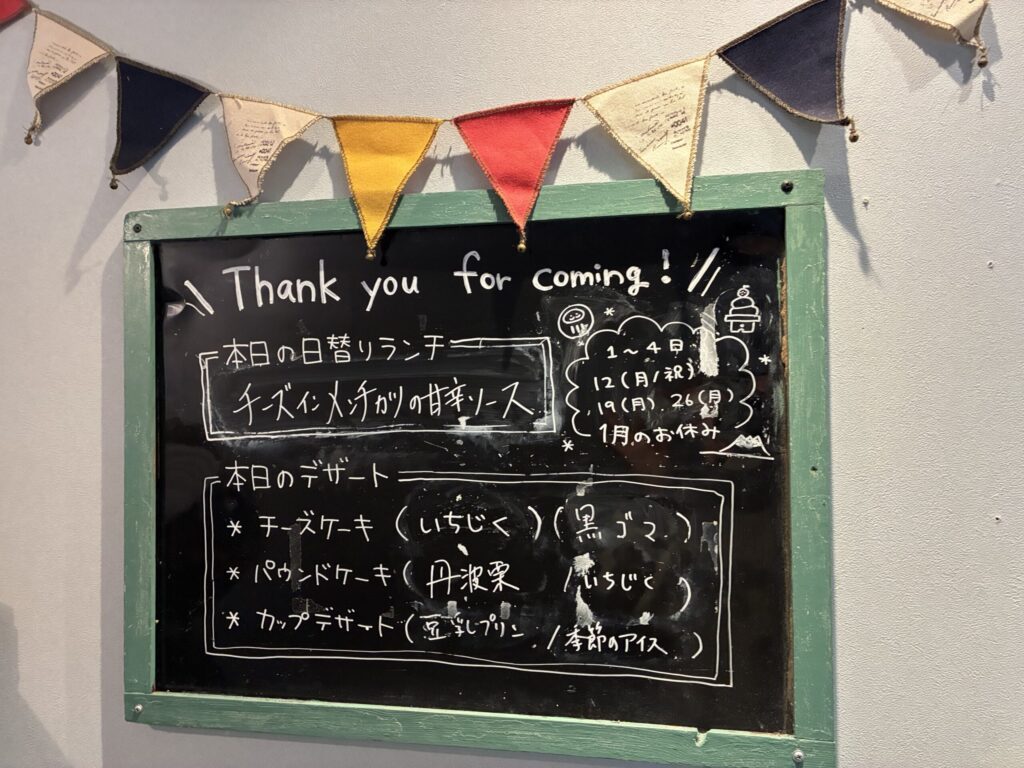 Thank you for coming!
本日の日替りランチ
チーズインメンチカツの甘辛ソース
1〜4日
12(月/祝)
19(月). 26(月)
1月のお休み
本日のデザート
* チーズケーキ (いちじく)(黒ゴマ)
* パウンドケーキ(丹波栗 /いちじく)
* カップデザート(豆乳プリン /季節のアイス)